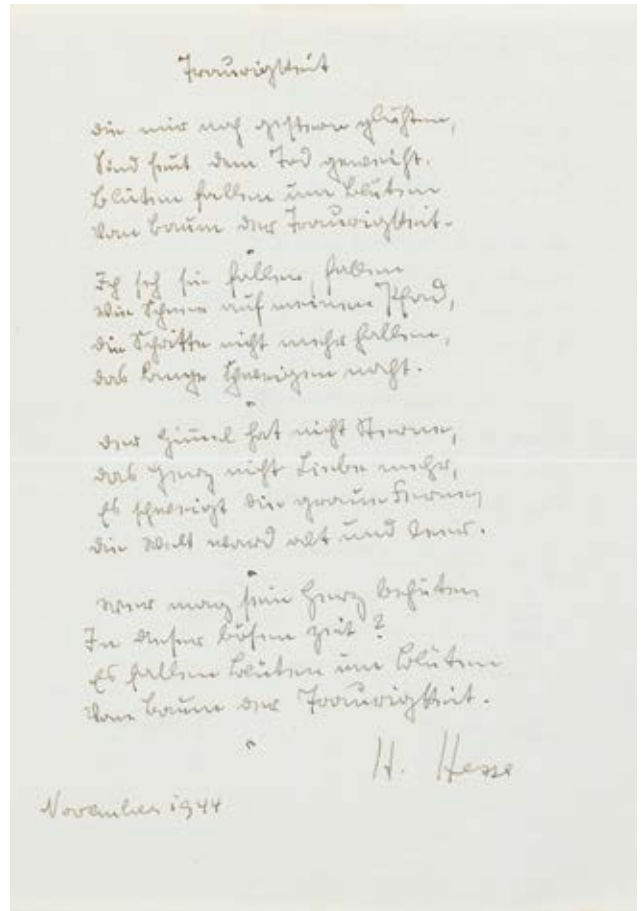 Traurigkeit
Die mir noch gestern glühten,
Sind heut dem Tod geweiht.
Blüten fallen um Blüten
Vom Baum der Traurigkeit.
Ich seh sie fallen, fallen
Wie Schnee auf meinen Pfad,
Die Schritte nicht mehr hallen,
Das lange Schweigen naht.
Der Himmel hat nicht Sterne,
Das Herz nicht Liebe mehr,
Es schweigt die graue Ferne,
Die Welt ward alt und leer.
Wer mag sein Herz behüten
In dieser bösen Zeit?
Es fallen Blüten um Blüten
Vom Baum der Traurigkeit.
H. Hesse
November 1944